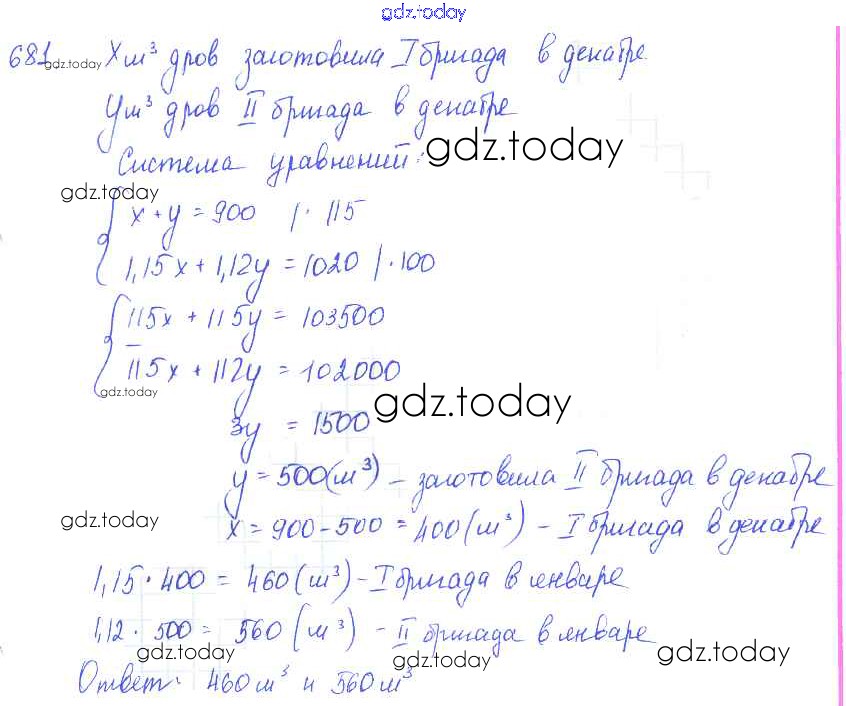 gdz.today
681. gdz.today X м³ дров заготовила I бригада в декабре
Y м³ дров II бригада в декабре
Система уравнений: gdz.today
gdz.today
x + y = 900 | · 115
1,15x + 1,12y = 1020 | · 100
115x + 115y = 103500
115x + 112y = 102000
gdz.today gdz.today
3y = 1500
y = 500 (м³) – заготовила II бригада в декабре
gdz.today x = 900 - 500 = 400 (м³) – I бригада в декабре
1,15 · 400 = 460 (м³) – I бригада в январе
1,12 · 500 = 560 (м³) – II бригада в январе
gdz.today gdz.today gdz.today
Ответ: 460 м³ и 560 м³